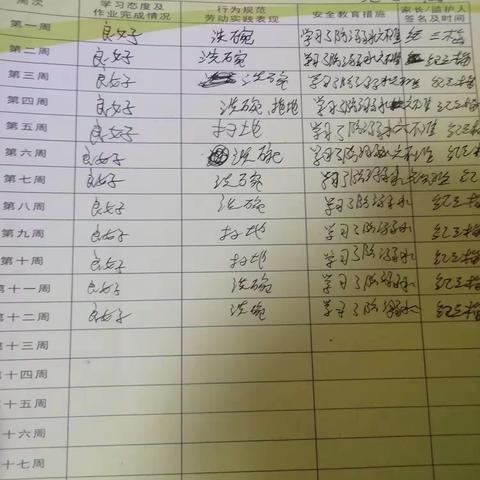 周次 学习态度及作业完成情况 行为规范劳动实践表现 安全教育措施 家长/监护人签名及时间
第一周 良好 洗碗 学习了防溺水六不准
第二周 良好 洗碗 学习了防溺水六不准
第三周 良好 洗碗 学习了防溺水六不准
第四周 良好 洗碗、拖地 学习了防溺水六不准
第五周 良好 扫地 学习了防溺水六不准
第六周 良好 洗碗 学习了防溺水六不准
第七周 良好 洗碗 学习了防溺水六不准
第八周 良好 洗碗 学习了防溺水
第九周 良好 扫地 学习了防溺水
第十周 良好 扫地 学习了防溺水
第十一周 良好 洗碗 学习了防溺水
第十二周 良好 洗碗 学习了防溺水
第十三周
第十四周
十五周
十六周
十七周